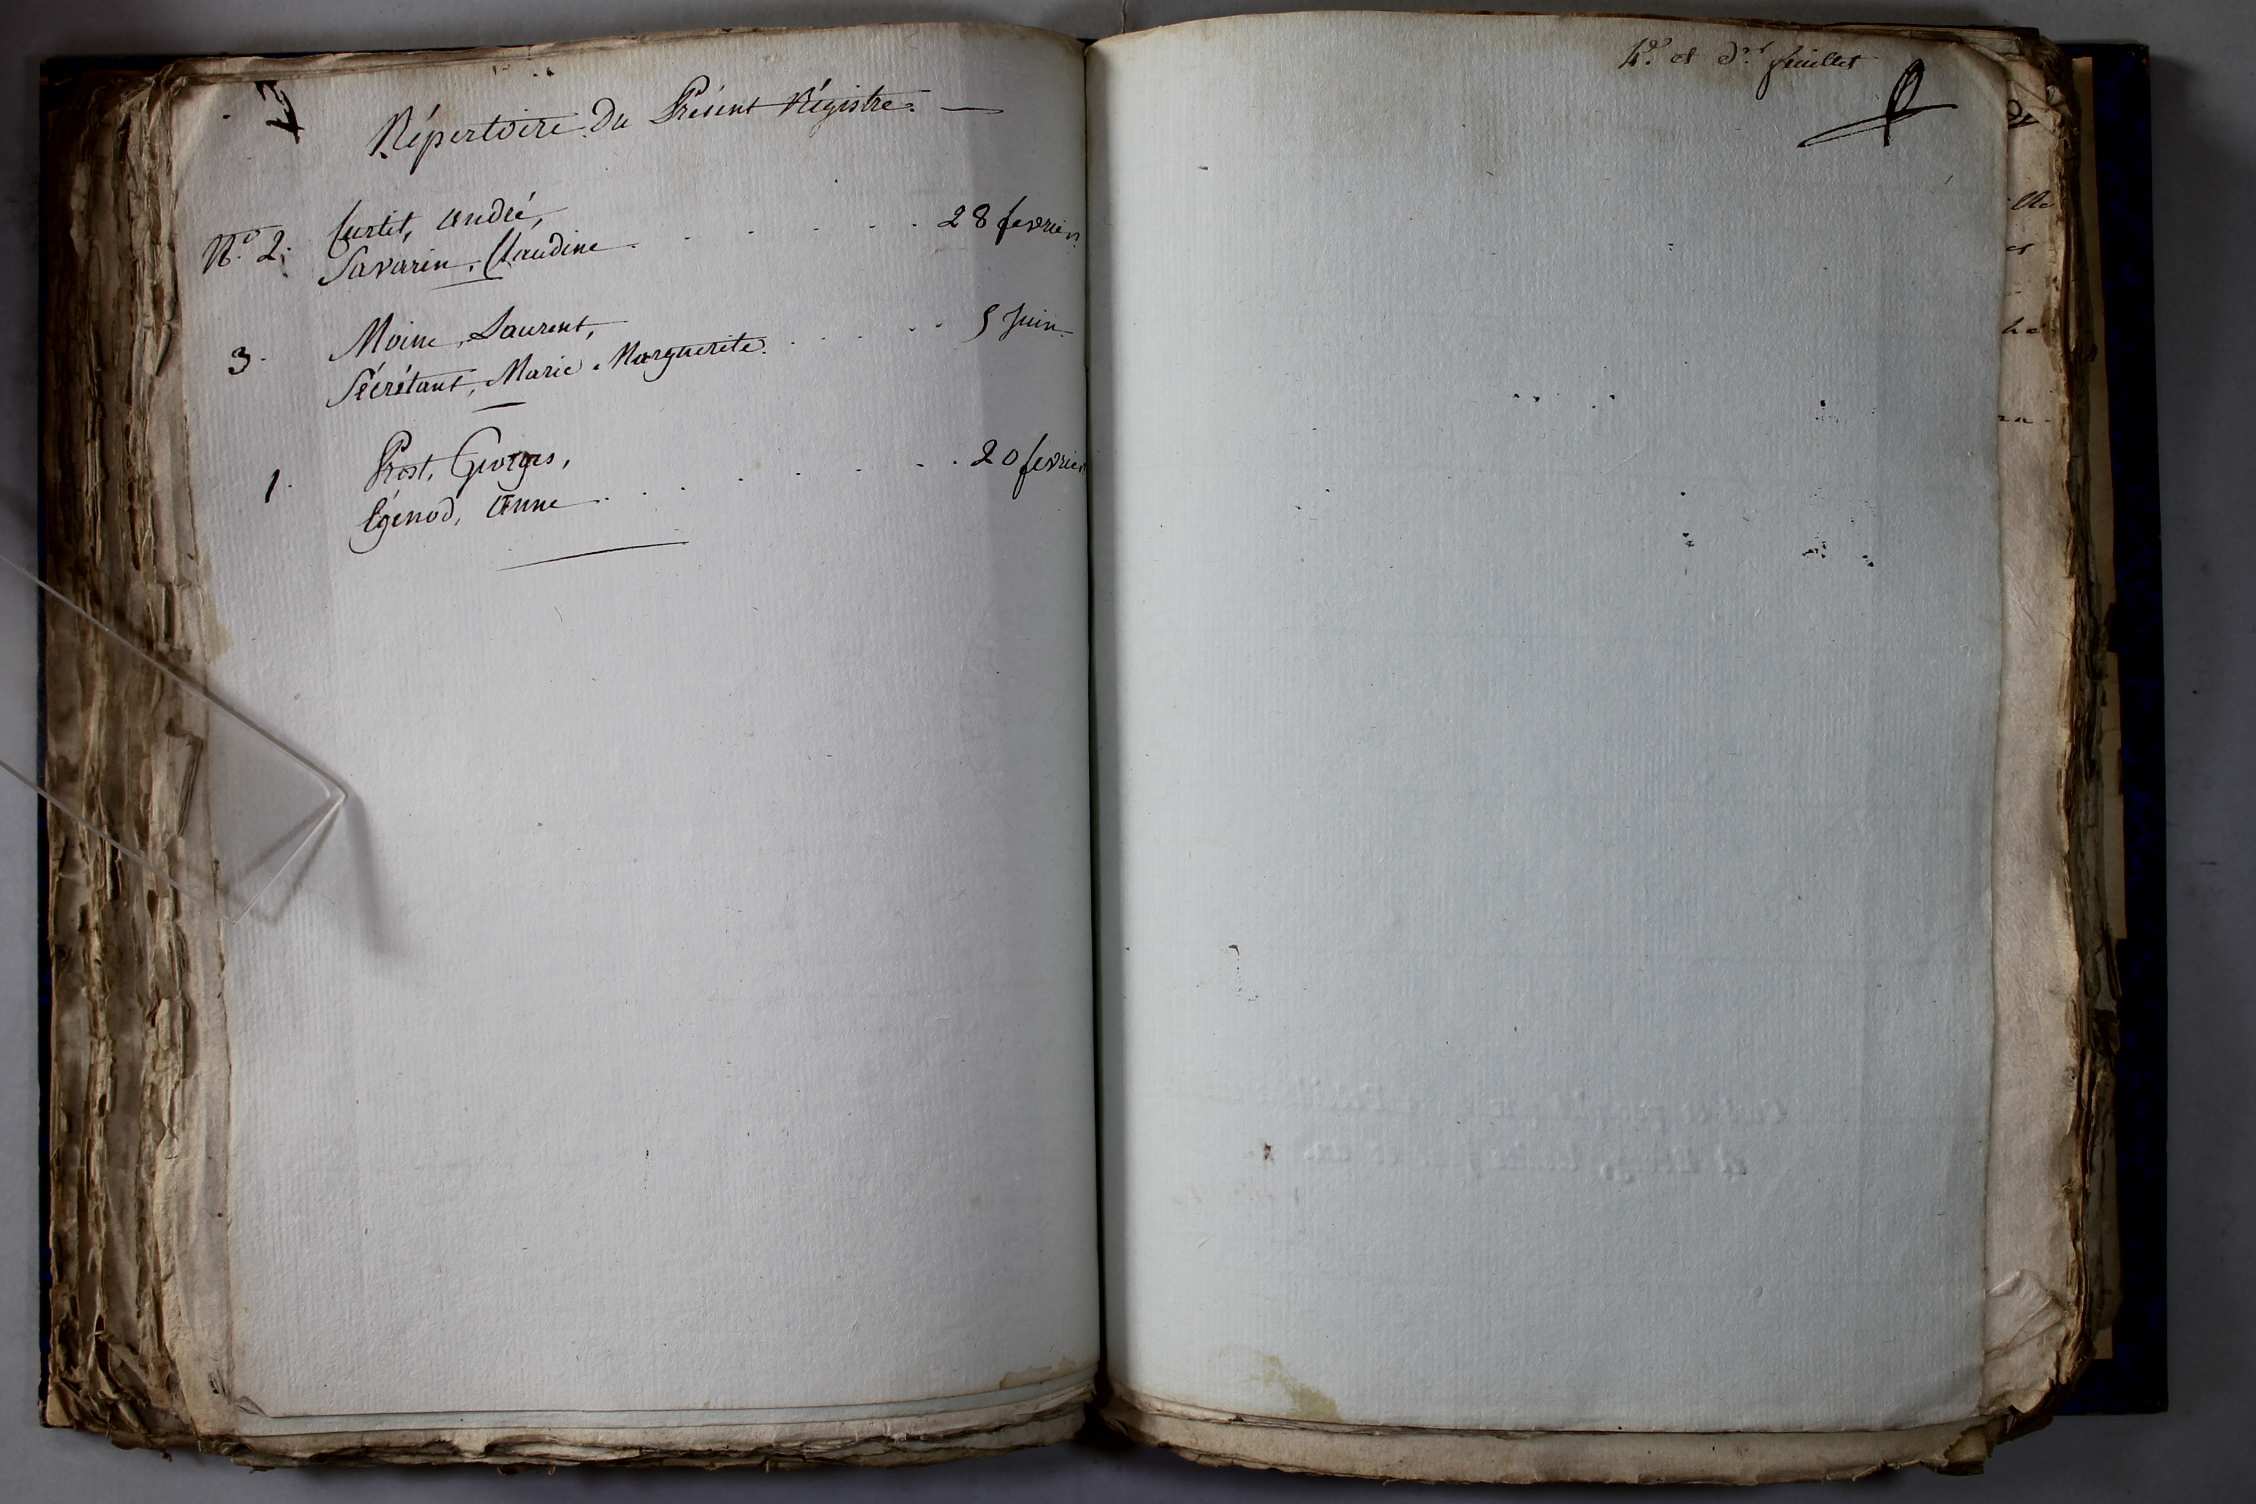 Répertoire Du Présent Régistre. —
N.º 2. Curtil, André,
Savarin, Claudine . . . . . . . 28 fevrier.
3. Moine, Laurent,
Sécrétant, Marie-Marguerite. . . . . . 5 Juin.
1. Prost, Georges,
Egénod, Anne . . . . . . . . 20 fevrier
4.e et d.er feuillet